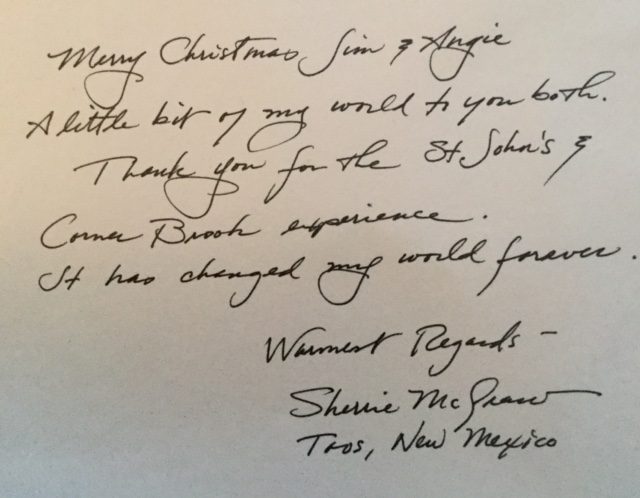 Merry Christmas Jim & Angie
A little bit of my world to you both.
Thank you for the St John's &
Corner Brook experience.
It has changed my world forever.
Warmest Regards -
Sherrie McGraw
Taos, New Mexico